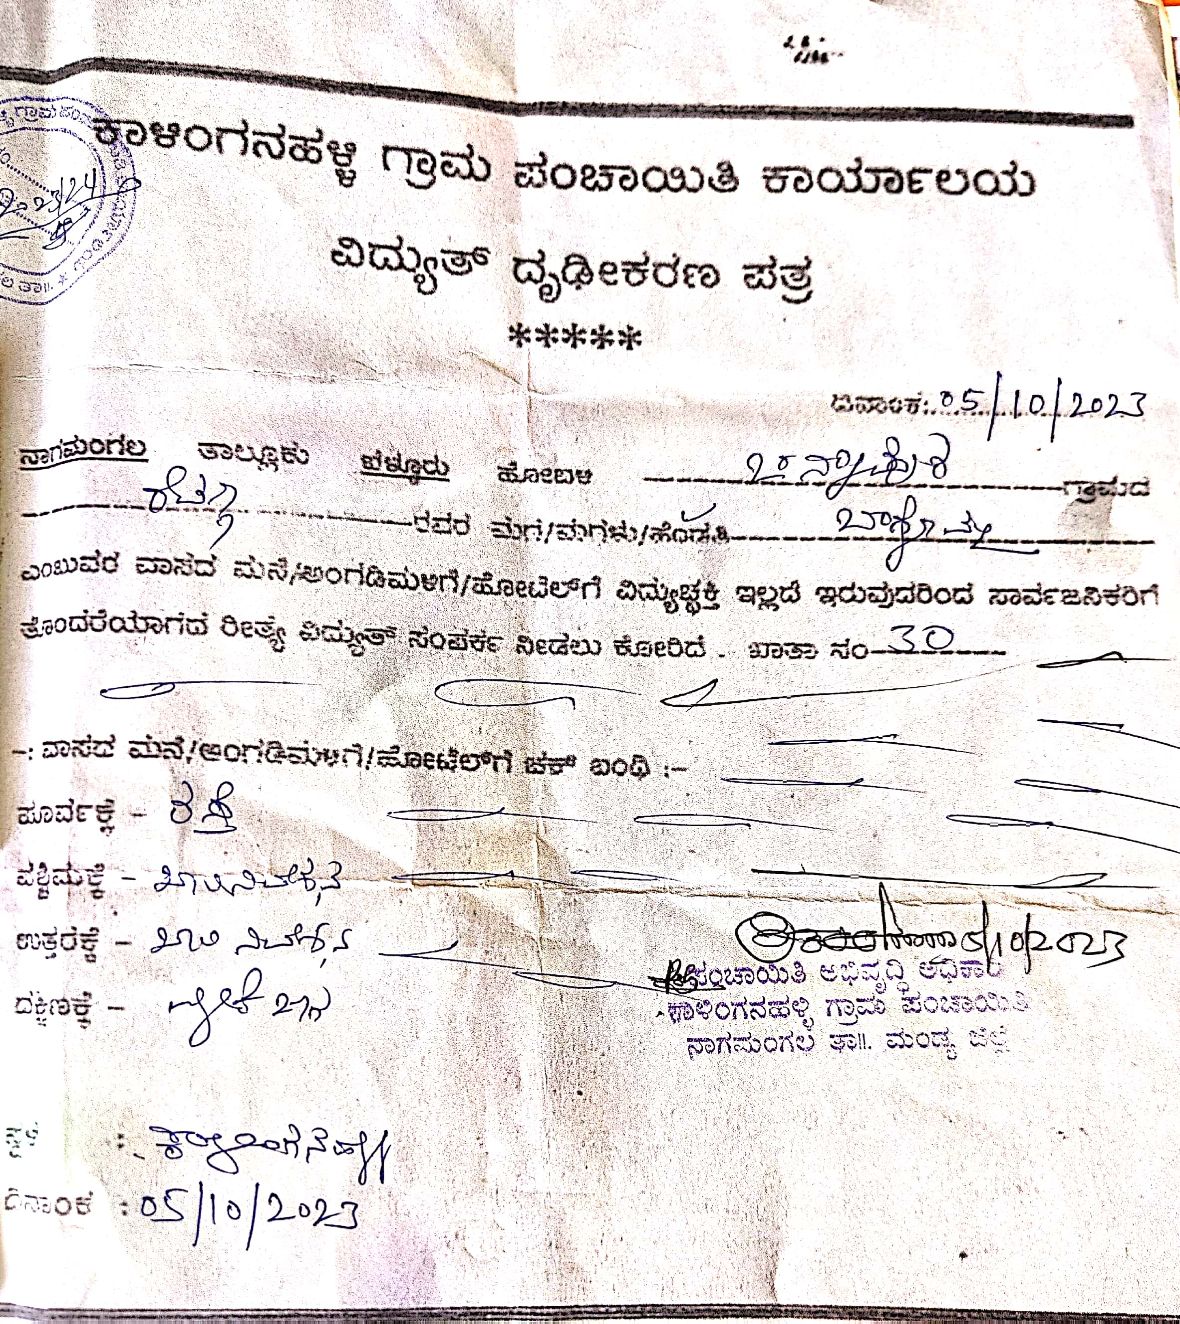 ಕಾಳಿಂಗನಹಳ್ಳಿ ಗ್ರಾಮ ಪಂಚಾಯಿತಿ ಕಾರ್ಯಾಲಯ
ವಿದ್ಯುತ್ ದೃಢೀಕರಣ ಪತ್ರ
*****
ದಿನಾಂಕ: 05/10/2023
ನಾಗಮಂಗಲ ತಾಲ್ಲೂಕು ಬೆಳ್ಳೂರು ಹೋಬಳಿ ಗ್ರಾಮದ
ರವರ ಮಗ/ಮಗಳು/ಹೆಂಡತಿ
ಎಂಬುವರ ವಾಸದ ಮನೆ/ಅಂಗಡಿಮಳಿಗೆ/ಹೋಟೆಲ್‌ಗೆ ವಿದ್ಯುಚ್ಛಕ್ತಿ ಇಲ್ಲದೆ ಇರುವುದರಿಂದ ಸಾರ್ವಜನಿಕರಿಗೆ
ತೊಂದರೆಯಾಗದ ರೀತ್ಯ ವಿದ್ಯುತ್ ಸಂಪರ್ಕ ನೀಡಲು ಕೋರಿದೆ . ಖಾತಾ ಸಂ-30
-: ವಾಸದ ಮನೆ/ಅಂಗಡಿಮಳಿಗೆ/ಹೋಟೆಲ್‌ಗೆ ಚಕ್ ಬಂಧಿ :-
ಪೂರ್ವಕ್ಕೆ - ರಸ್ತೆ
ಪಶ್ಚಿಮಕ್ಕೆ - ಖಾಲಿನಿವೇಶನ
ಉತ್ತರಕ್ಕೆ - ಖಾಲಿ ನಿವೇಶನ
ದಕ್ಷಿಣಕ್ಕೆ -
5/10/2023
ಪಂಚಾಯಿತಿ ಅಭಿವೃದ್ಧಿ ಅಧಿಕಾರಿ
ಕಾಳಿಂಗನಹಳ್ಳಿ ಗ್ರಾಮ ಪಂಚಾಯಿತಿ
ನಾಗಮಂಗಲ ತಾ||. ಮಂಡ್ಯ ಜಿಲ್ಲೆ
ಸ್ಥಳ : ಕಾಳಿಂಗನಹಳ್ಳಿ
ದಿನಾಂಕ : 05/10/2023